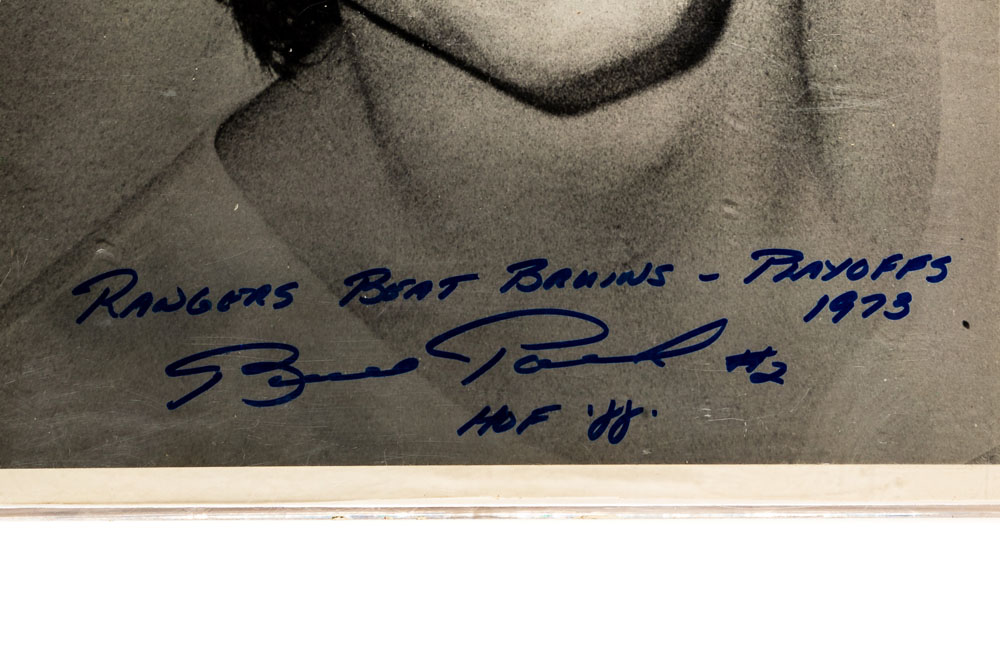 Rangers Beat Bruins - Playoffs
1973
Brad Park #2
HOF '88.